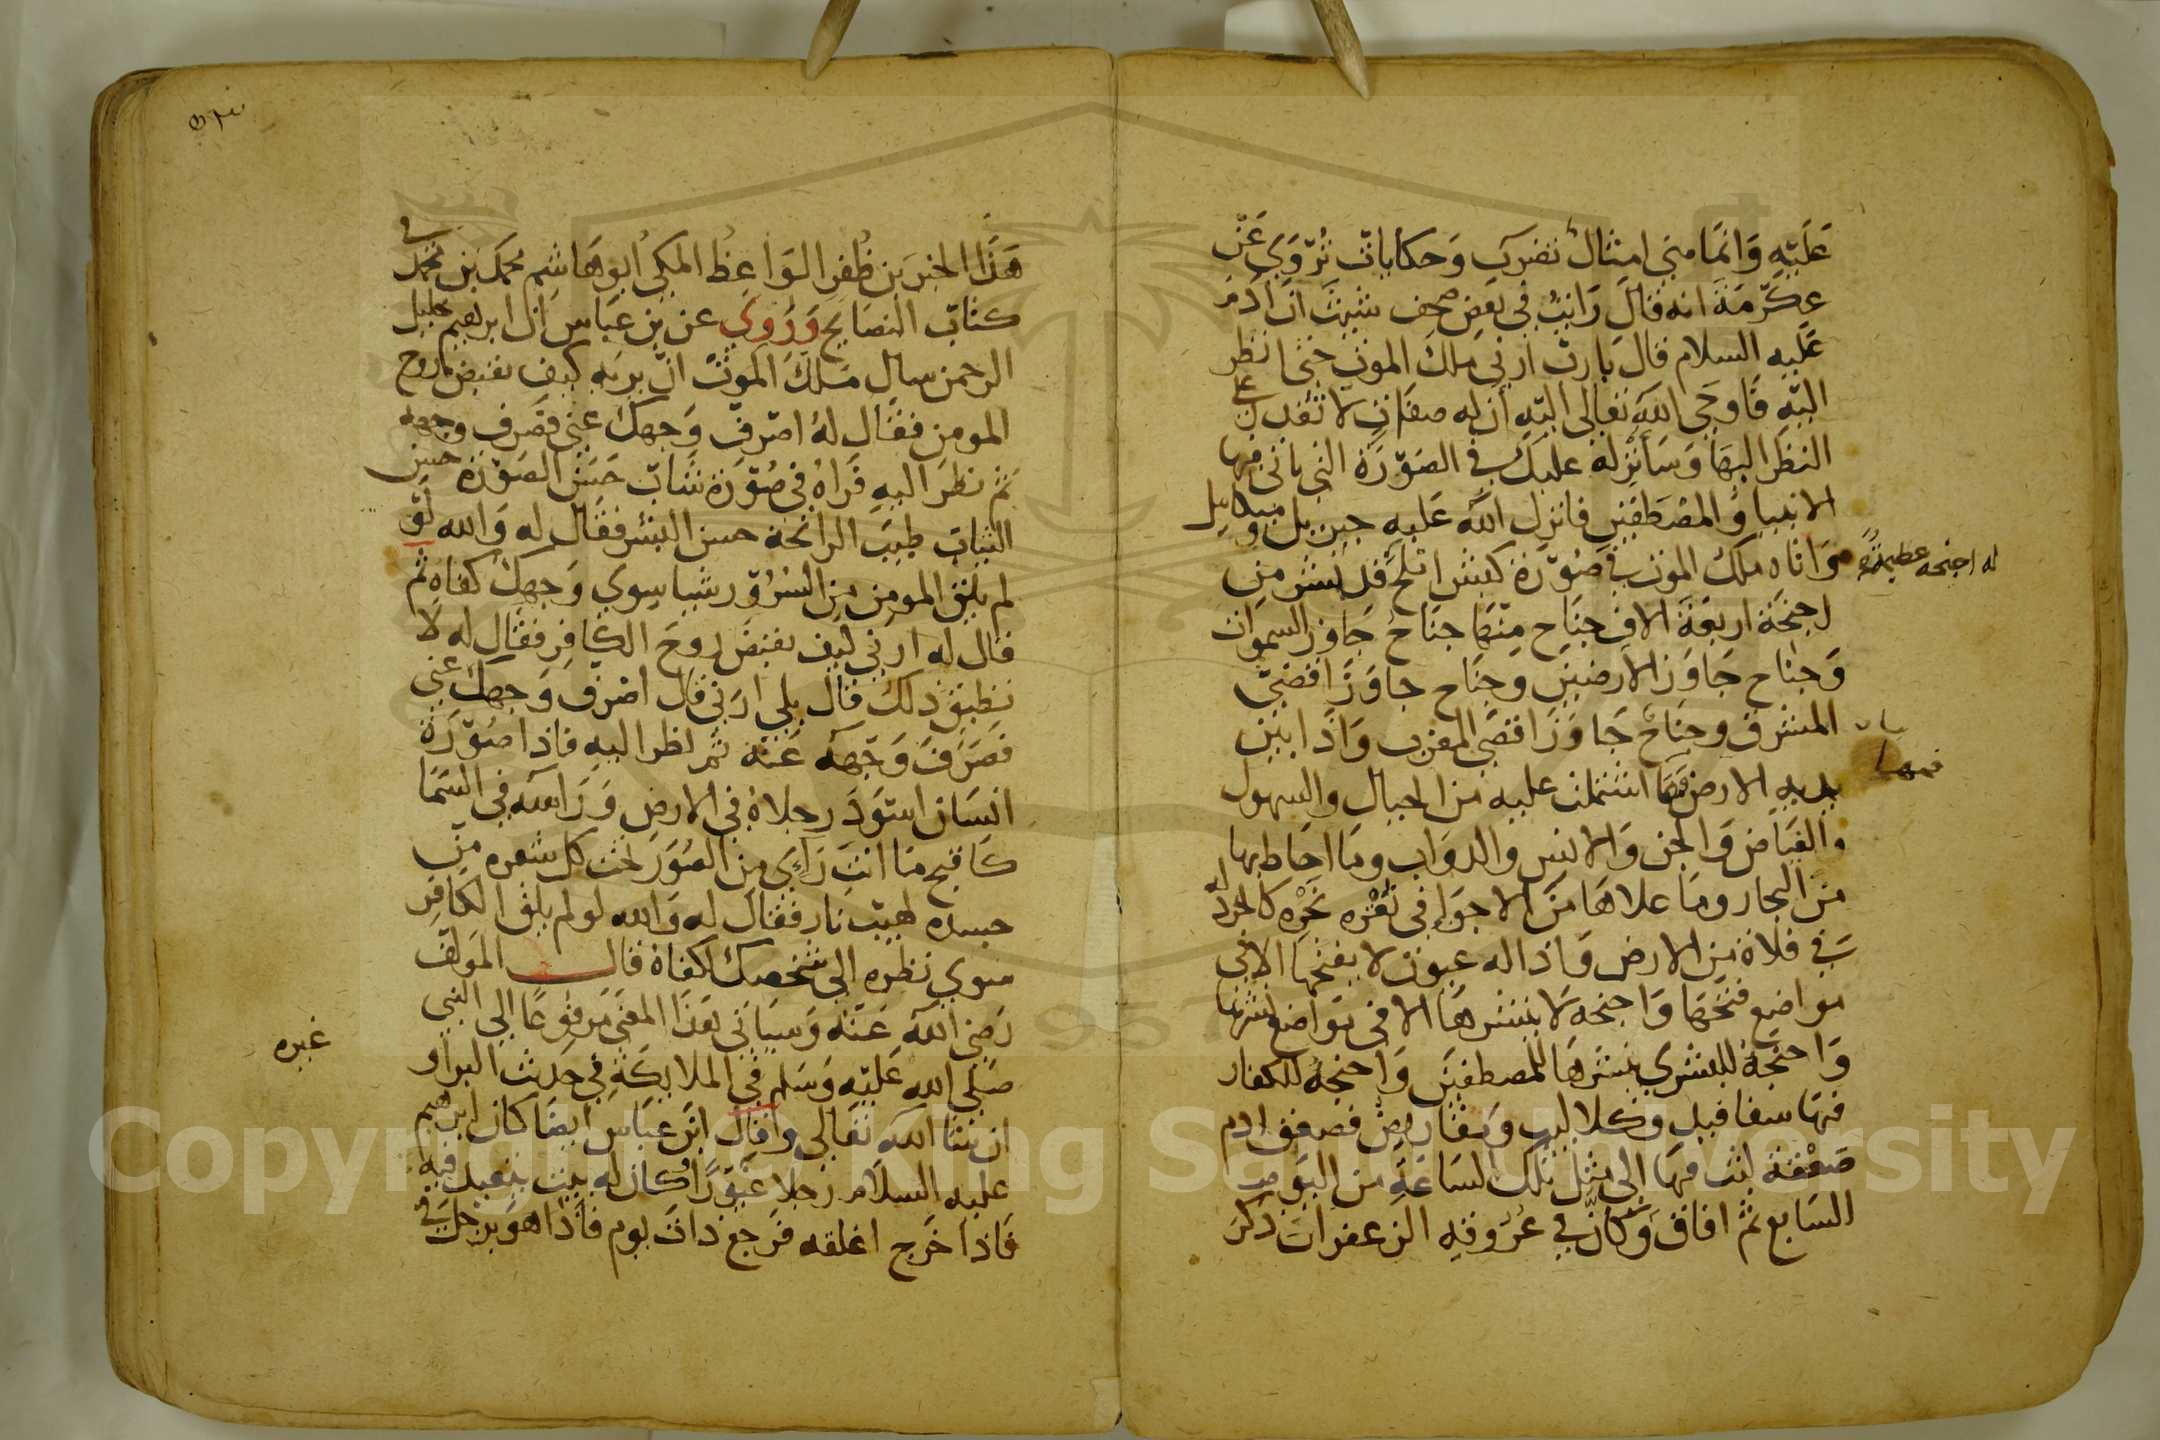 عليه وانما هي امثال تضرب وحكايات تروي عن
عكرمة انه قال رايت في بعض صحف شيث ان ادم
عليه السلام قال يارب ارني ملك الموت حتى انظر
اليه فاوحي الله تعالى اليه ان له صفات لا تقدر على
النظر اليها وسانزله عليك في الصورة التي ياتي فيها
الانبيا والمصطفين فانزل الله عليه جبريل وميكاييل
واتاه ملك الموت في صورة كبش املح قد نشر من
اجنحة اربعة الاف جناح منها جناح جاوز السموات
وجناح جاوز الارضين وجناح جاوز اقصى
المشرق وجناح جاوز اقصى المغرب واذا بين
يديه الارض بما اشتملت عليه من الجبال والسهول
والغياض والجن والانس والدواب وما احاط بها
من البحار وما علاها من الاجوا في ثغرة نحره كالخردلة
في فلاة من الارض واذا له عيون لا يفتحها الا في
مواضع فتحها واجنحة لا ينشرها الا في مواضع نشرها
واجنحة للبشري ينشرها للمصطفين واجنحة للكفار
فيها سفافيد وكلاليب ومقاريض فصعق ادم
صعقة لبث فيها الى مثل تلك الساعة من اليوم
السابع ثم افاق وكان في عروقه الزعفران ذكر
له اجنحة عطيمة
هذا الخبر بن ظفر الواعظ المكي ابو هاشم محمد بن محمد في
كتاب النصايح وروي عن بن عباس ان ابرهيم خليل
الرحمن سال ملك الموت ان يريه كيف يقبض روح
المومن فقال له اصرف وجهك عني فصرف وجهه
ثم نظر اليه فراه في صورة شاب حسن الصورة حسن
الثياب طيب الرائحة حسن البشر فقال له والله لو
لم يلق المومن من السرور شيا سوي وجهك كفاه ثم
قال له ارني كيف تقبض روح الكافر فقال له لا
تطيق ذلك قال بلى ارني قال اصرف وجهك عني
فصرف وجهه عنه ثم نظر اليه فاذا صورة
انسان اسود رجلاه في الارض وراسه في السما
كاقبح ما انت راي من الصور تحت كل شعره من
جسده لهيب نار فقال له والله لو لم يلق الكافر
سوي نظره الى شخصك لكفاه قال المولف
رضي الله عنه وسياتي هذا المعنى مرفوعا الى النبي
صلى الله عليه وسلم في الملايكة في حديث البراو
ان شا الله تعالى وقال ابن عباس ايضا كان ابرهيم
عليه السلام رجلا غيورا وكان له بيت يتعبد فيه
فاذا خرج اغلقه فرجع ذات يوم فاذا هو برجل في
غيره